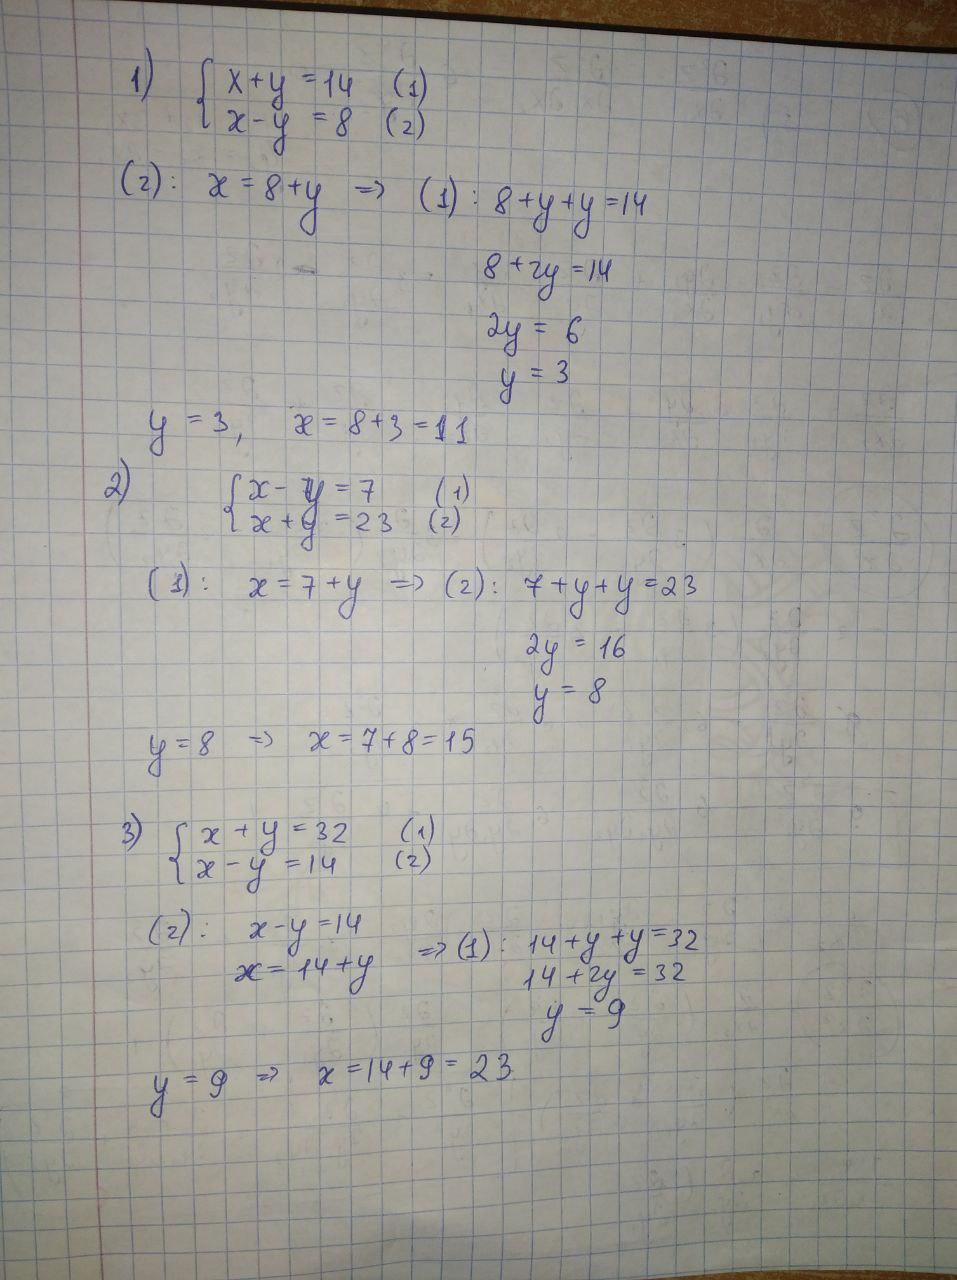 1) { x + y = 14 (1)
x - y = 8 (2)
(2): x = 8 + y => (1): 8 + y + y = 14
8 + 2y = 14
2y = 6
y = 3
y = 3, x = 8 + 3 = 11
2) { x - y = 7 (1)
x + y = 23 (2)
(1): x = 7 + y => (2): 7 + y + y = 23
2y = 16
y = 8
y = 8 => x = 7 + 8 = 15
3) { x + y = 32 (1)
x - y = 14 (2)
(2): x - y = 14
x = 14 + y => (1): 14 + y + y = 32
14 + 2y = 32
y = 9
y = 9 => x = 14 + 9 = 23